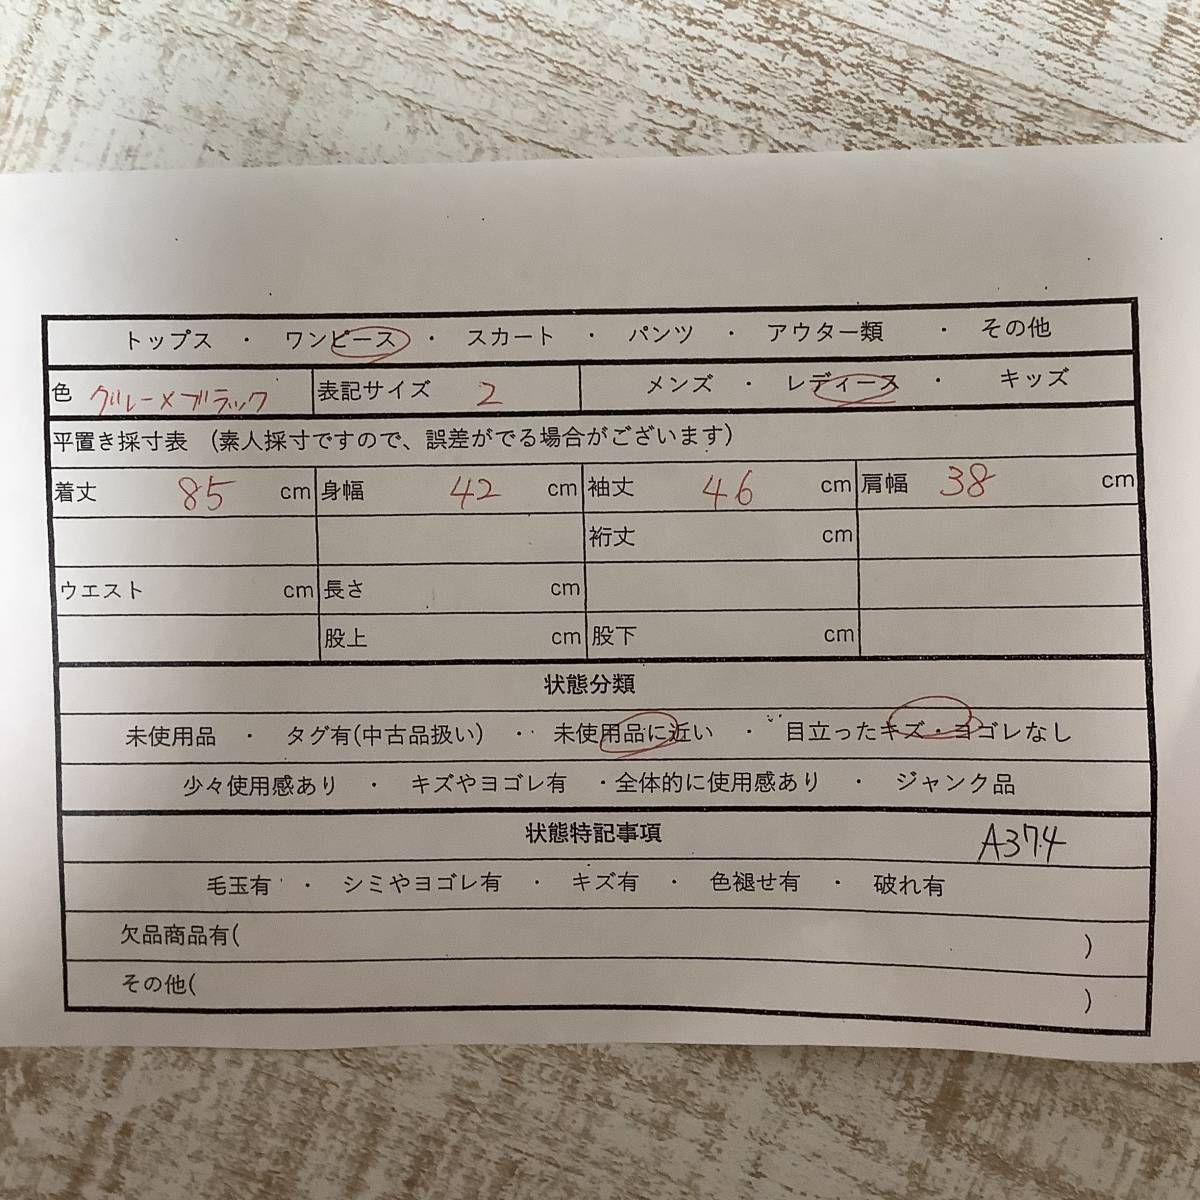 トップス ・ ワンピース ・ スカート ・ パンツ ・ アウター類 ・ その他
色 グレー×ブラック 表記サイズ 2 メンズ ・ レディース ・ キッズ
平置き採寸表 (素人採寸ですので、誤差がでる場合がございます)
着丈 85 cm 身幅 42 cm 袖丈 46 cm 肩幅 38 cm
裄丈 cm
ウエスト cm 長さ cm
股上 cm 股下 cm
状態分類
未使用品 ・ タグ有(中古品扱い) ・ 未使用品に近い ・ 目立ったキズ・ヨゴレなし
少々使用感あり ・ キズやヨゴレ有 ・全体的に使用感あり ・ ジャンク品
状態特記事項 A374
毛玉有 ・ シミやヨゴレ有 ・ キズ有 ・ 色褪せ有 ・ 破れ有
欠品商品有( )
その他( )